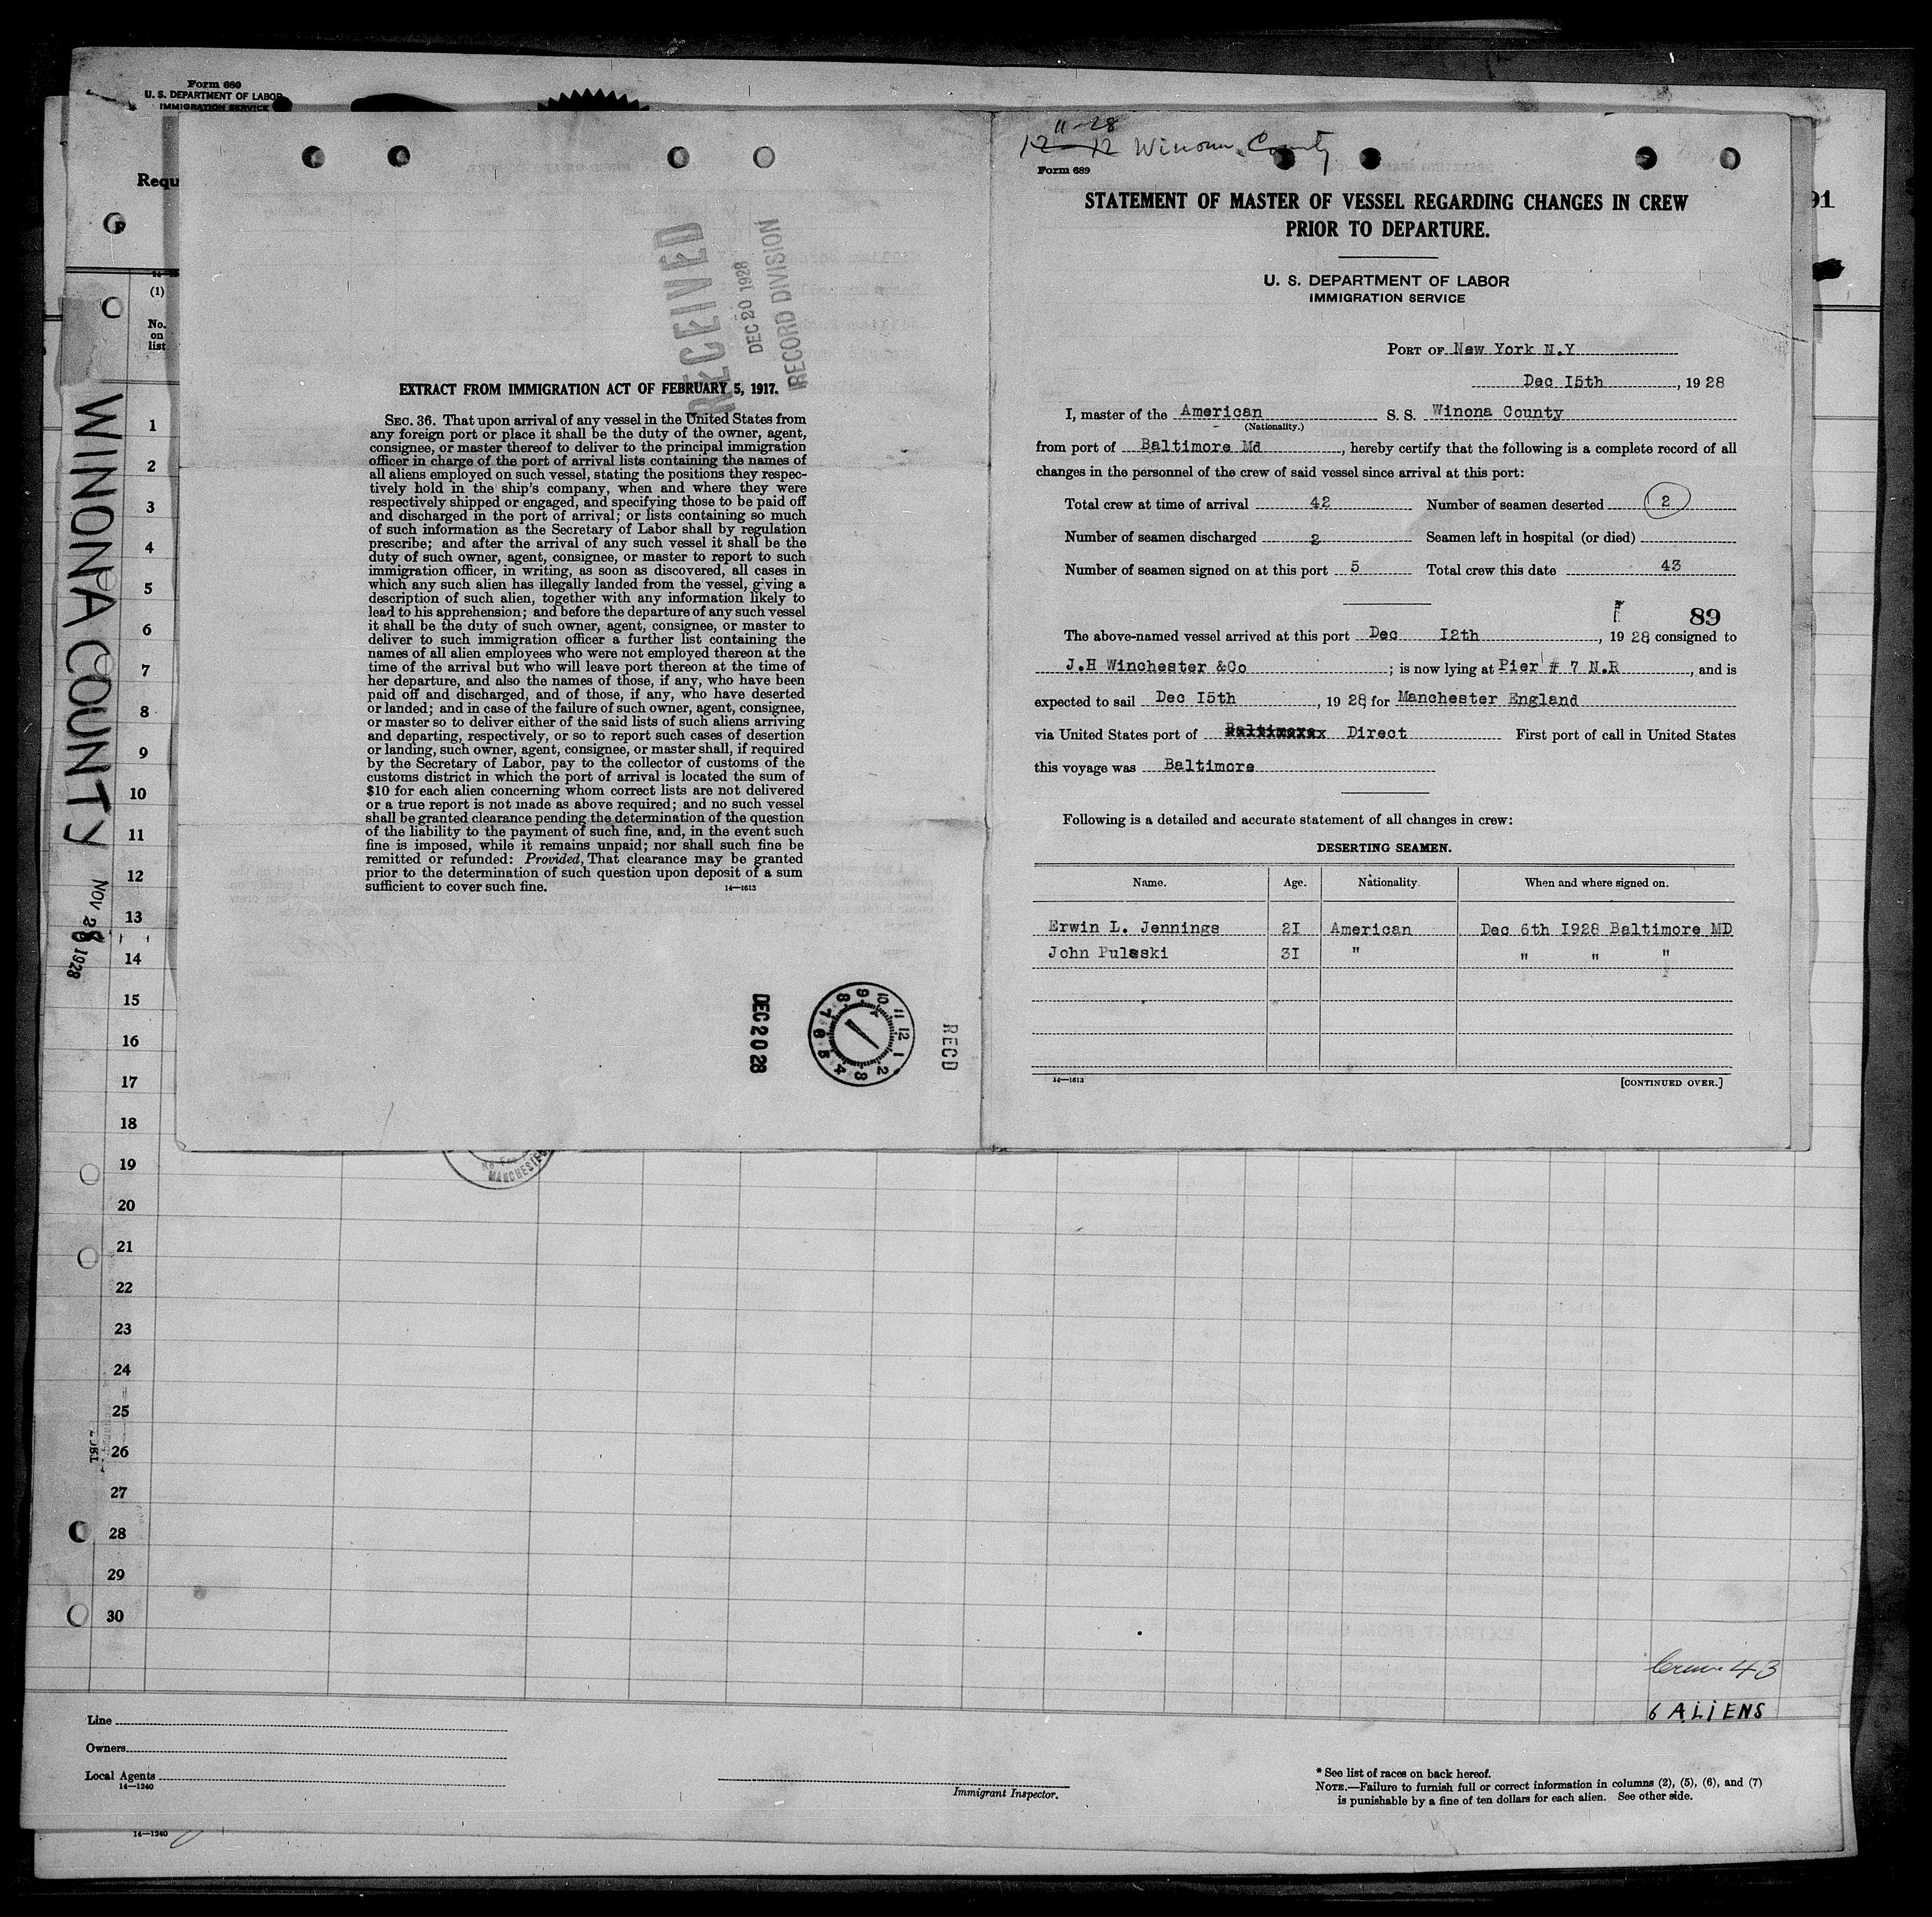 Form 680
U. S. DEPARTMENT OF LABOR
IMMIGRATION SERVICE
Requ
91
(1)
No.
on
list
WINONA COUNTY
NOV 28 1928
1
2
3
4
5
6
7
8
9
10
11
12
13
14
15
16
17
18
19
20
21
22
23
24
25
26
27
28
29
30
RECEIVED
DEC 20 1928
RECORD DIVISION
EXTRACT FROM IMMIGRATION ACT OF FEBRUARY 5, 1917.
SEC. 36. That upon arrival of any vessel in the United States from
any foreign port or place it shall be the duty of the owner, agent,
consignee, or master thereof to deliver to the principal immigration
officer in charge of the port of arrival lists containing the names of
all aliens employed on such vessel, stating the positions they respec-
tively hold in the ship's company, when and where they were
respectively shipped or engaged, and specifying those to be paid off
and discharged in the port of arrival; or lists containing so much
of such information as the Secretary of Labor shall by regulation
prescribe; and after the arrival of any such vessel it shall be the
duty of such owner, agent, consignee, or master to report to such
immigration officer, in writing, as soon as discovered, all cases in
which any such alien has illegally landed from the vessel, giving a
description of such alien, together with any information likely to
lead to his apprehension; and before the departure of any such vessel
it shall be the duty of such owner, agent, consignee, or master to
deliver to such immigration officer a further list containing the
names of all alien employees who were not employed thereon at the
time of the arrival but who will leave port thereon at the time of
her departure, and also the names of those, if any, who have been
paid off and discharged, and of those, if any, who have deserted
or landed; and in case of the failure of such owner, agent, consignee,
or master so to deliver either of the said lists of such aliens arriving
and departing, respectively, or so to report such cases of desertion
or landing, such owner, agent, consignee, or master shall, if required
by the Secretary of Labor, pay to the collector of customs of the
customs district in which the port of arrival is located the sum of
$10 for each alien concerning whom correct lists are not delivered
or a true report is not made as above required; and no such vessel
shall be granted clearance pending the determination of the question
of the liability to the payment of such fine, and, in the event such
fine is imposed, while it remains unpaid; nor shall such fine be
remitted or refunded: Provided, That clearance may be granted
prior to the determination of such question upon deposit of a sum
sufficient to cover such fine. 14—1613
DEC 20 28
12 1 2 3 4 5 6 7 8 9 10 11
RECD
MANCHESTER
11-28
12-12 Winona County
Form 689
STATEMENT OF MASTER OF VESSEL REGARDING CHANGES IN CREW
PRIOR TO DEPARTURE.
U. S. DEPARTMENT OF LABOR
IMMIGRATION SERVICE
PORT OF New York N.Y
Dec I5th, 1928
I, master of the American S. S. Winona County
(Nationality.)
from port of Baltimore Md, hereby certify that the following is a complete record of all
changes in the personnel of the crew of said vessel since arrival at this port:
Total crew at time of arrival 42 Number of seamen deserted 2
Number of seamen discharged 2 Seamen left in hospital (or died)
Number of seamen signed on at this port 5 Total crew this date 43
89
The above-named vessel arrived at this port Dec I2th, 1928, consigned to
J.H Winchester &Co; is now lying at Pier # 7 N.R, and is
expected to sail Dec I5th, 1928, for Manchester England
via United States port of Baltimore Direct First port of call in United States
this voyage was Baltimore
Following is a detailed and accurate statement of all changes in crew:
DESERTING SEAMEN.
Name. Age. Nationality. When and where signed on.
Erwin L. Jennings 2I American Dec 6th I928 Baltimore MD
John Pulaski 3I " " " "
14—1613 [CONTINUED OVER.]
Crew 43
6 ALiENS
Line
Owners
Local Agents
14—1240
Immigrant Inspector.
* See list of races on back hereof.
NOTE.—Failure to furnish full or correct information in columns (2), (5), (6), and (7)
is punishable by a fine of ten dollars for each alien. See other side.
14—1240